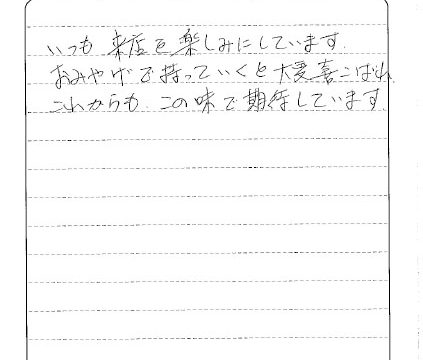 いつも 来店を楽しみにしています.
おみやげで持っていくと大変喜こばれ
これからも この味で期待しています